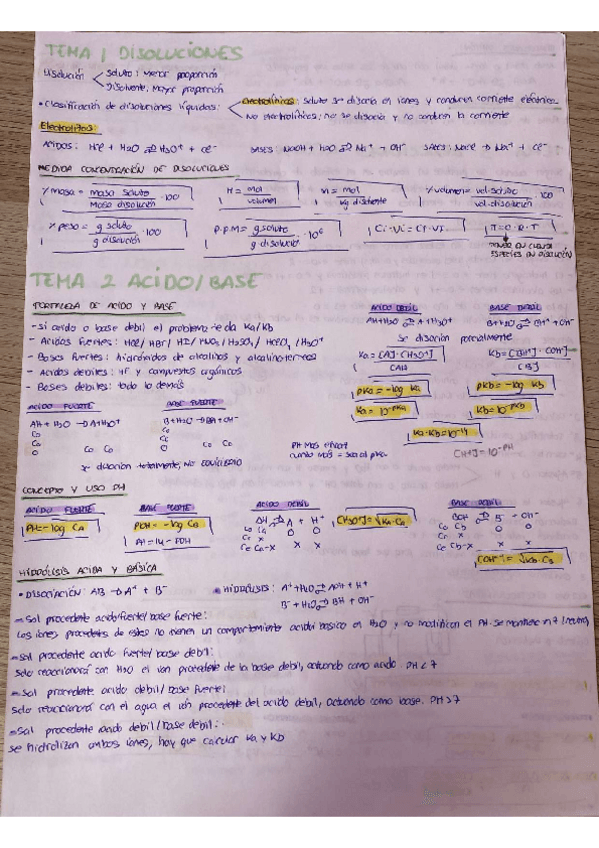 TEMA 1 DISOLUCIONES
Disolución Soluto: menor proporción
Disolvente: Mayor proporción
• Clasificación de disoluciones líquidas: Electrolíticas: soluto se disocia en iones y conducen corriente eléctrica
No electrolíticas: no se disocia y no conducen la corriente
Electrolitos:
Ácidos: HCl + H2O ⇄ H3O+ + Cl- BASES: NaOH + H2O ⇄ Na+ + OH- SALES: NaCl → Na+ + Cl-
MEDIDA CONCENTRACIÓN DE DISOLUCIONES
% masa = masa soluto / masa disolución · 100 M = mol / volumen m = mol / kg disolvente % volumen = vol. soluto / vol. disolución · 100
% peso = g soluto / g disolución · 100 P.P.M = g soluto / g disolución · 10^6 Ci · Vi = Cf · Vf π = C · R · T
TENER EN CUENTA
ESPECIES EN DISOLUCIÓN
TEMA 2 ACIDO/BASE
FORTALEZA DE ACIDO Y BASE
- Si acido o base debil el problema te da Ka/Kb
- Acidos fuertes: HCl / HBr / HI / HNO3 / H2SO4 / HClO4 / HSO4-
- Bases fuertes: hidróxidos de alcalinos y alcalinoterreos
- Acidos debiles: HF y compuestos orgánicos
- Bases debiles: todo lo demás
ACIDO DEBIL BASE DEBIL
AH + H2O ⇄ A- + H3O+ B + H2O ⇄ BH+ + OH-
Se disocian parcialmente
Ka = [A-] · [H3O+] / [AH] Kb = [BH+] · [OH-] / [B]
pKa = -log Ka pKb = -log Kb
Ka = 10^-pKa Kb = 10^-pKb
Ka · Kb = 10^-14
ACIDO FUERTE BASE FUERTE
AH + H2O → A- + H3O+ B + H2O → BH + OH-
Co Co
Co Co
O Co Co O Co Co
se disocian totalmente, NO EQUILIBRIO
pH más
cuanto más = sea al pKa
[H+] = 10^-PH
CONCEPTO Y USO PH
ACIDO FUERTE BASE FUERTE ACIDO DEBIL BASE DEBIL
PH = -log Ca POH = -log Ca
PH = 14 - POH
AH ⇄ A + H+
Co Co O O
Cr x
Ce Ca-x x x
[H3O+] = √Ka · Ca
BOH ⇄ B + OH-
Co Cb O O
Cr x
Ce Cb-x x x
[OH-] = √Kb · Cb
HIDRÓLISIS ACIDA Y BÁSICA
• DISOCIACIÓN: AB → A+ + B- • HIDRÓLISIS: A+ + H2O ⇄ AOH + H+
B- + H2O ⇄ BH + OH-
⇒ Sal procedente acido fuerte/base fuerte:
Los iones procedentes de estos no tienen un comportamiento acido/basico en H2O y no modifican el PH. Se mantiene en 7 (neutro)
⇒ sal procedente acido fuerte/base debil:
Solo reaccionará con H2O el ion procedente de la base debil, actuando como acido. PH < 7
⇒ sal procedente acido debil/base fuerte:
Solo reaccionará con el agua el ión procedente del acido debil, actuando como base. PH > 7
⇒ sal procedente acido debil/base debil:
se hidrolizan ambos iones, hay que calcular Ka y Kb